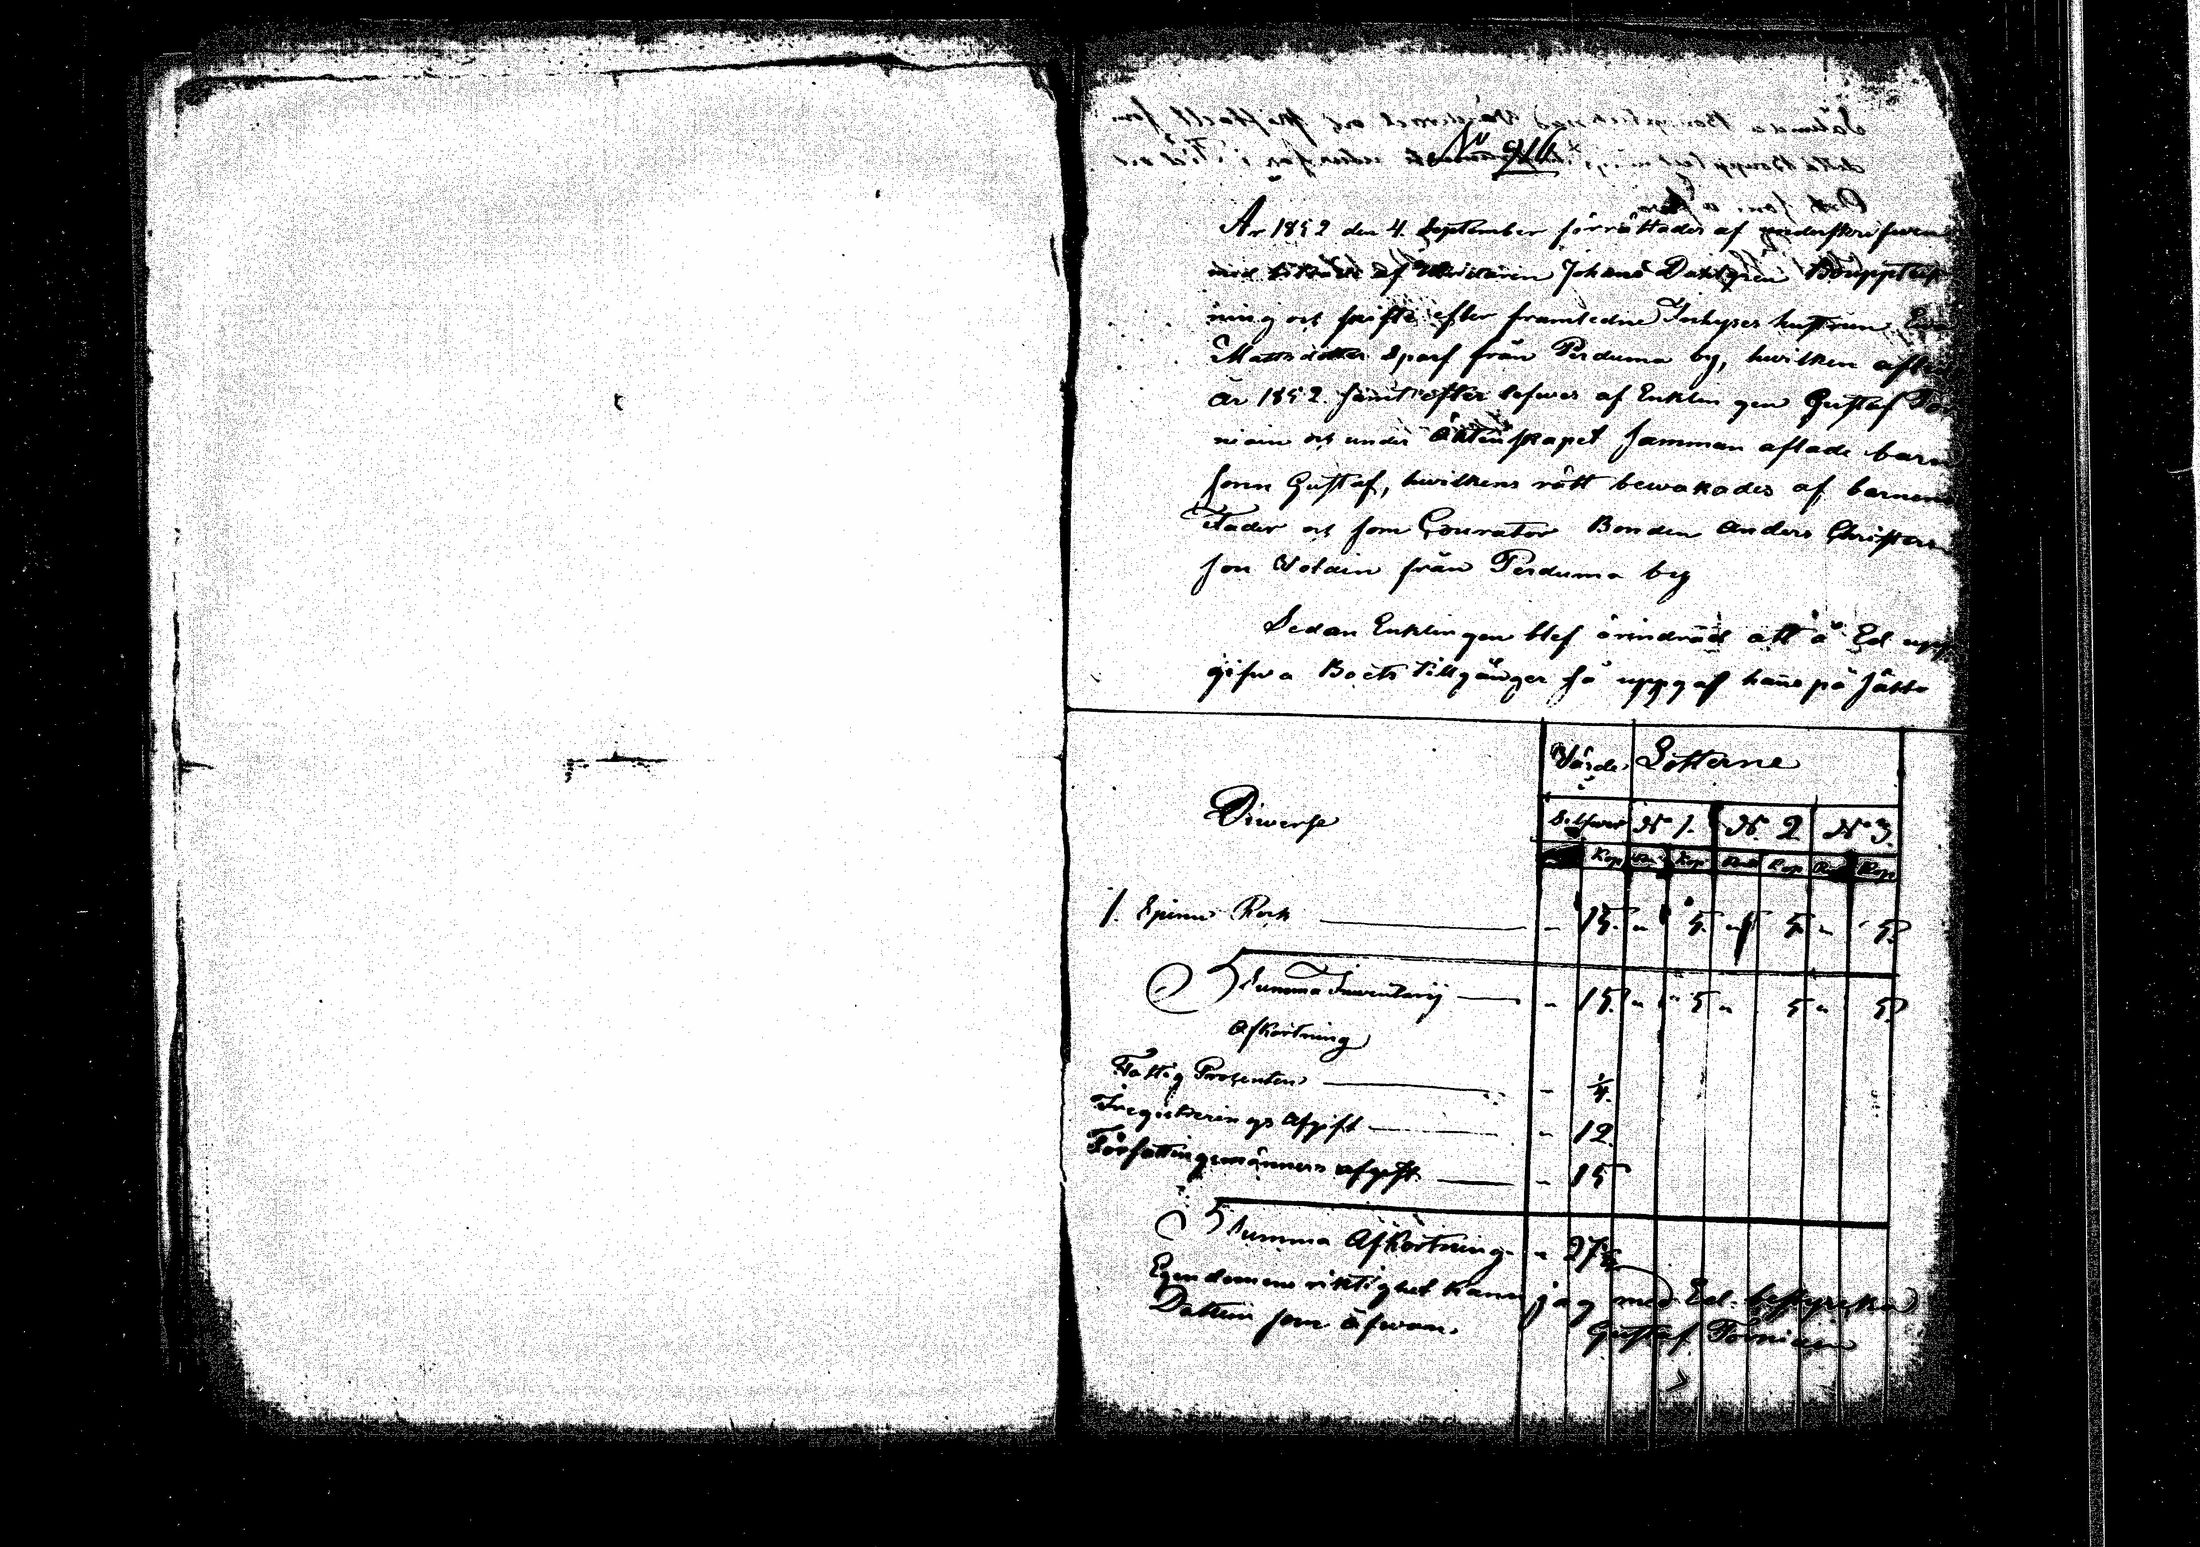 År 1852 den 4. September förrättades af underskrifwen
med biträde af Johans Dahlgren Boupptek
ning och skifte efter framledne Inhyses hustrun Ewa
Mattsdotter Sparf från Perduma by, hwilken
år 1852. samt efter lefwes af Enklingen Gustaf
och under Äktenskapet samman aflade barn
sonen Gustaf, hwilkens rätt bewakades af barnens
Fader och som Courator Bonden Anders Christers
son från Perduma by
Sedan Enklingen blef ärindrad att å Ed upp
gifwa Boets tillgångar så uppgaf han på sätt
Wärde Lotterne
Diwerse
Silfwer N 1. N. 2 N. 3
Kop Kop Rub Kop Kop
1. Spinn Rock - 15. " 5. " 5. " 5.
Summa Inwentarij - 15 " 5 " 5 " 5
Afkortning
Fattig Procenten - 1/4.
Inregistrerings Afgift - 12.
Författningsmänners afgift - 15
Summa Afkortning - 27 1/4
Egendomens riktighet kann jag med Ed. bestyrcka
Datum som åfwan. Gustaf